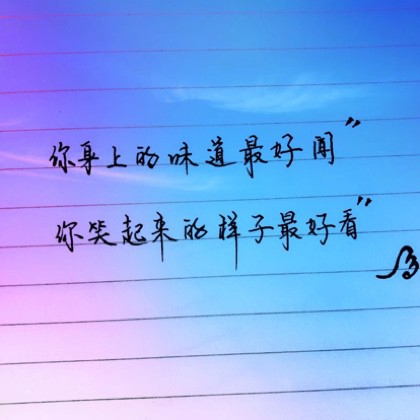 你身上的味道最好闻”
你笑起来的样子最好看”